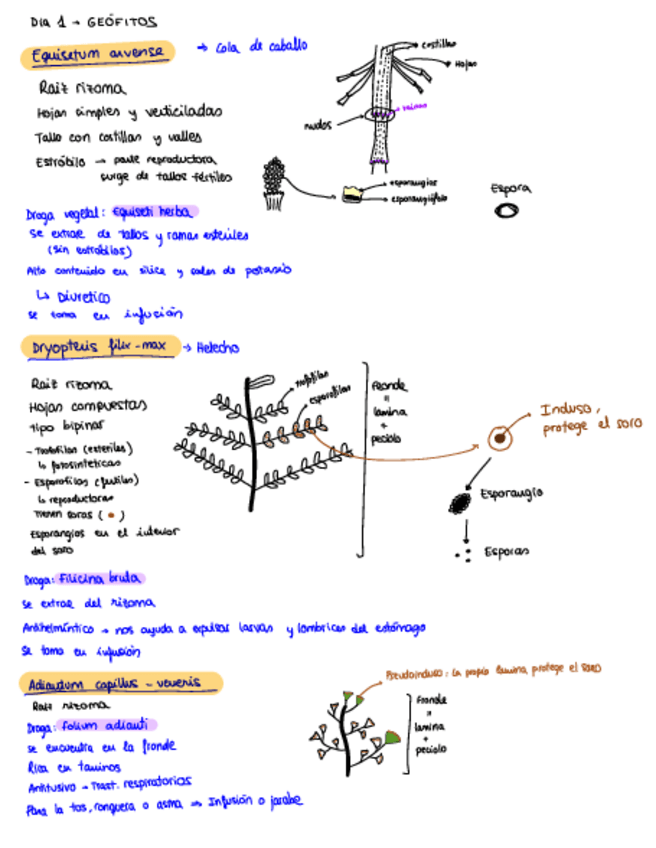 DIA 1 → GEÓFITOS
Equisetum arvense → Cola de caballo
Raiz rizoma
Hojas simples y verticiladas
Tallo con costillas y valles
Estróbilo → parte reproductora,
surge de tallos fértiles
costillas
Hojas
vainas
nudos
esporangios
esporangióforo
Espora
Droga vegetal: Equiseti herba
Se extrae de tallos y ramas estériles
(sin estróbilos)
Alto contenido en sílice y sales de potasio
↳ Diuretico
se toma en infusión
Dryopteris filix-max → Helecho
Raiz rizoma
Hojas compuestas
tipo bipinar
- Trofofilas (esteriles)
↳ fotosinteticas
- Esporofilas (fértiles)
↳ reproductoras
Tienen soros ( )
Esporangios en el interior
del soro
trofofilas
esporofilas
Fronde
=
lamina
+
peciolo
Induso,
protege el soro
Esporangio
Esporas
Droga: Filicina bruta
se extrae del rizoma
Antihelmíntico → nos ayuda a expulsar larvas y lombrices del estómago
Se toma en infusión
Adiantum capillus-veneris
Raiz rizoma
Droga: Folium adianti
se encuentra en la fronde
Rica en taninos
Antitusivo → Trast. respiratorios
Para la tos, ronquera o asma ⇒ Infusión o jarabe
Pseudoinduso: la propia lamina, protege el soro
Fronde
=
lamina
+
peciolo